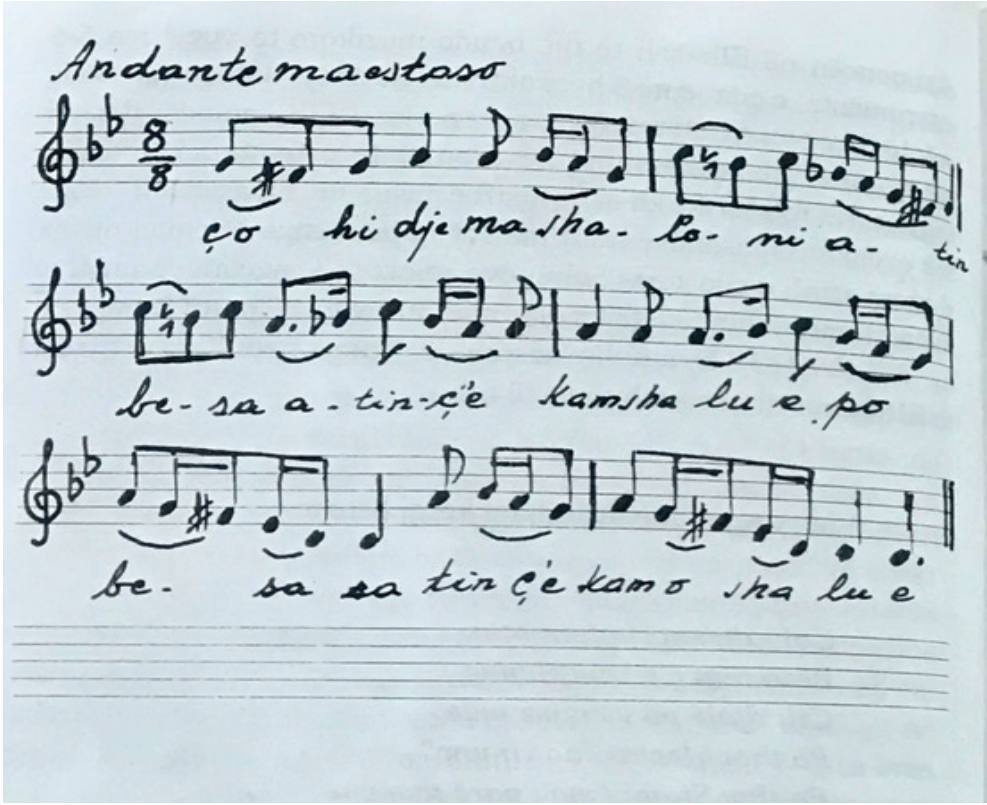 Andante maestaso
8/8
ço hi dje ma sha- lo- ni a- tin
be- sa a- tin- ç'ë kam sha lu e po
be- sa sa tin ç'ë kam o sha lu e